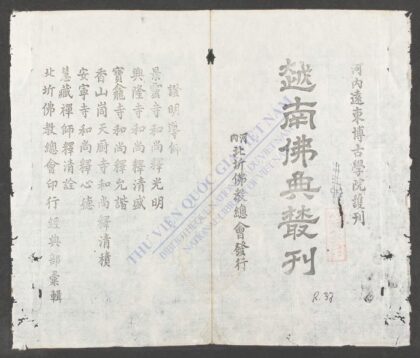 河內遠東博古學院護刊
越南佛典叢刊
河內北圻佛教總會發行
R.37
證明導師
景雲寺和尚釋光明
興隆寺和尚釋清盛
寶龕寺和尚釋允諧
香山崗天廚寺和尚釋清積
安寧寺和尚釋心德
慧藏禪師釋清詮
北圻佛教總會印行 經典部彙輯
THƯ VIỆN QUỐC GIA VIỆT NAM
NATIONAL LIBRARY OF VIETNAM